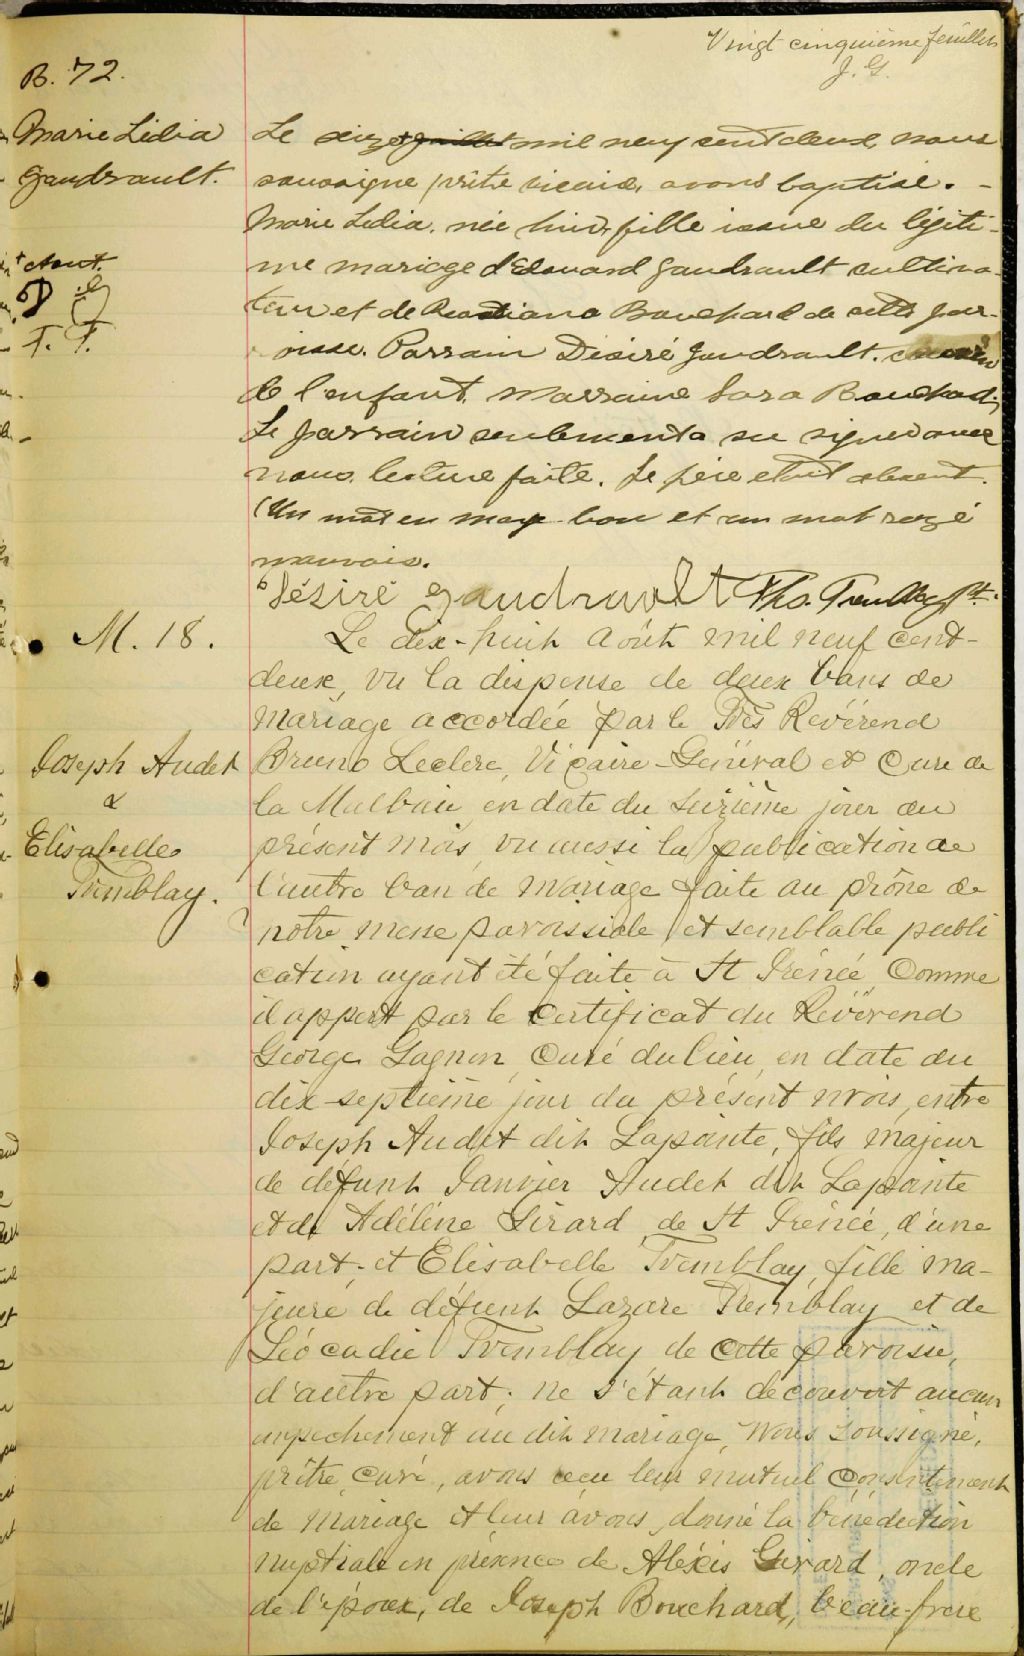 Vingt cinquième feuillet
J. G.
B. 72.
Marie Lidia
Gaudrault.
+ Aout.
D. G.
T. T.
Le seize + juillet mil neuf cent deux, nous
soussigné prêtre vicaire, avons baptisé. -
Marie Lidia, née hier, fille issue du légiti-
me mariage d'Edouard Gaudrault cultiva-
teur et de Bouchard de cette par-
oisse. Parrain Désiré Gaudrault.
de l'enfant. Marraine Sara Bouchard,
Le parrain seulement a su signer avec
nous. lecture faite. Le père etait absent.
(Un mot en marge bon et un mot rayé
mauvais.
Désiré Gaudrault Tho. Tremblay Ptr.
M. 18.
Joseph Audet
&
Elisabelle
Tremblay.
Le dix-huit Août mil neuf cent-
deux, vu la dispense de deux bans de
mariage accordée par le Très Révérend
Bruno Leclerc, Vicaire-Général et Curé de
la Malbaie en date du seizième jour du
présent mois, vu aussi la publication de
l'autre ban de mariage faite au prône de
notre messe paroissiale et semblable publi
cation ayant été faite à St Irénée Comme
il appert par le certificat du Révérend
George Gagnon, Curé du lieu, en date du
dix-septième jour du présent mois, entre
Joseph Audet dit Lapointe, fils majeur
de défunt Janvier Audet dit Lapointe
et de Adéline Girard, de St Irénée, d'une
part; et Elisabelle Tremblay, fille ma-
jeure de défunt Lazare Tremblay et de
Léocadie Tremblay de cette paroisse,
d'autre part; ne s'étant découvert aucun
empechement au dit mariage, Nous soussigné,
prêtre, curé, avons recu leur mutuel consentement
de mariage et leur avons donné la bénédiction
nuptiale en présence de Aléxis Girard, oncle
de l'époux, de Joseph Bouchard, beau-frère